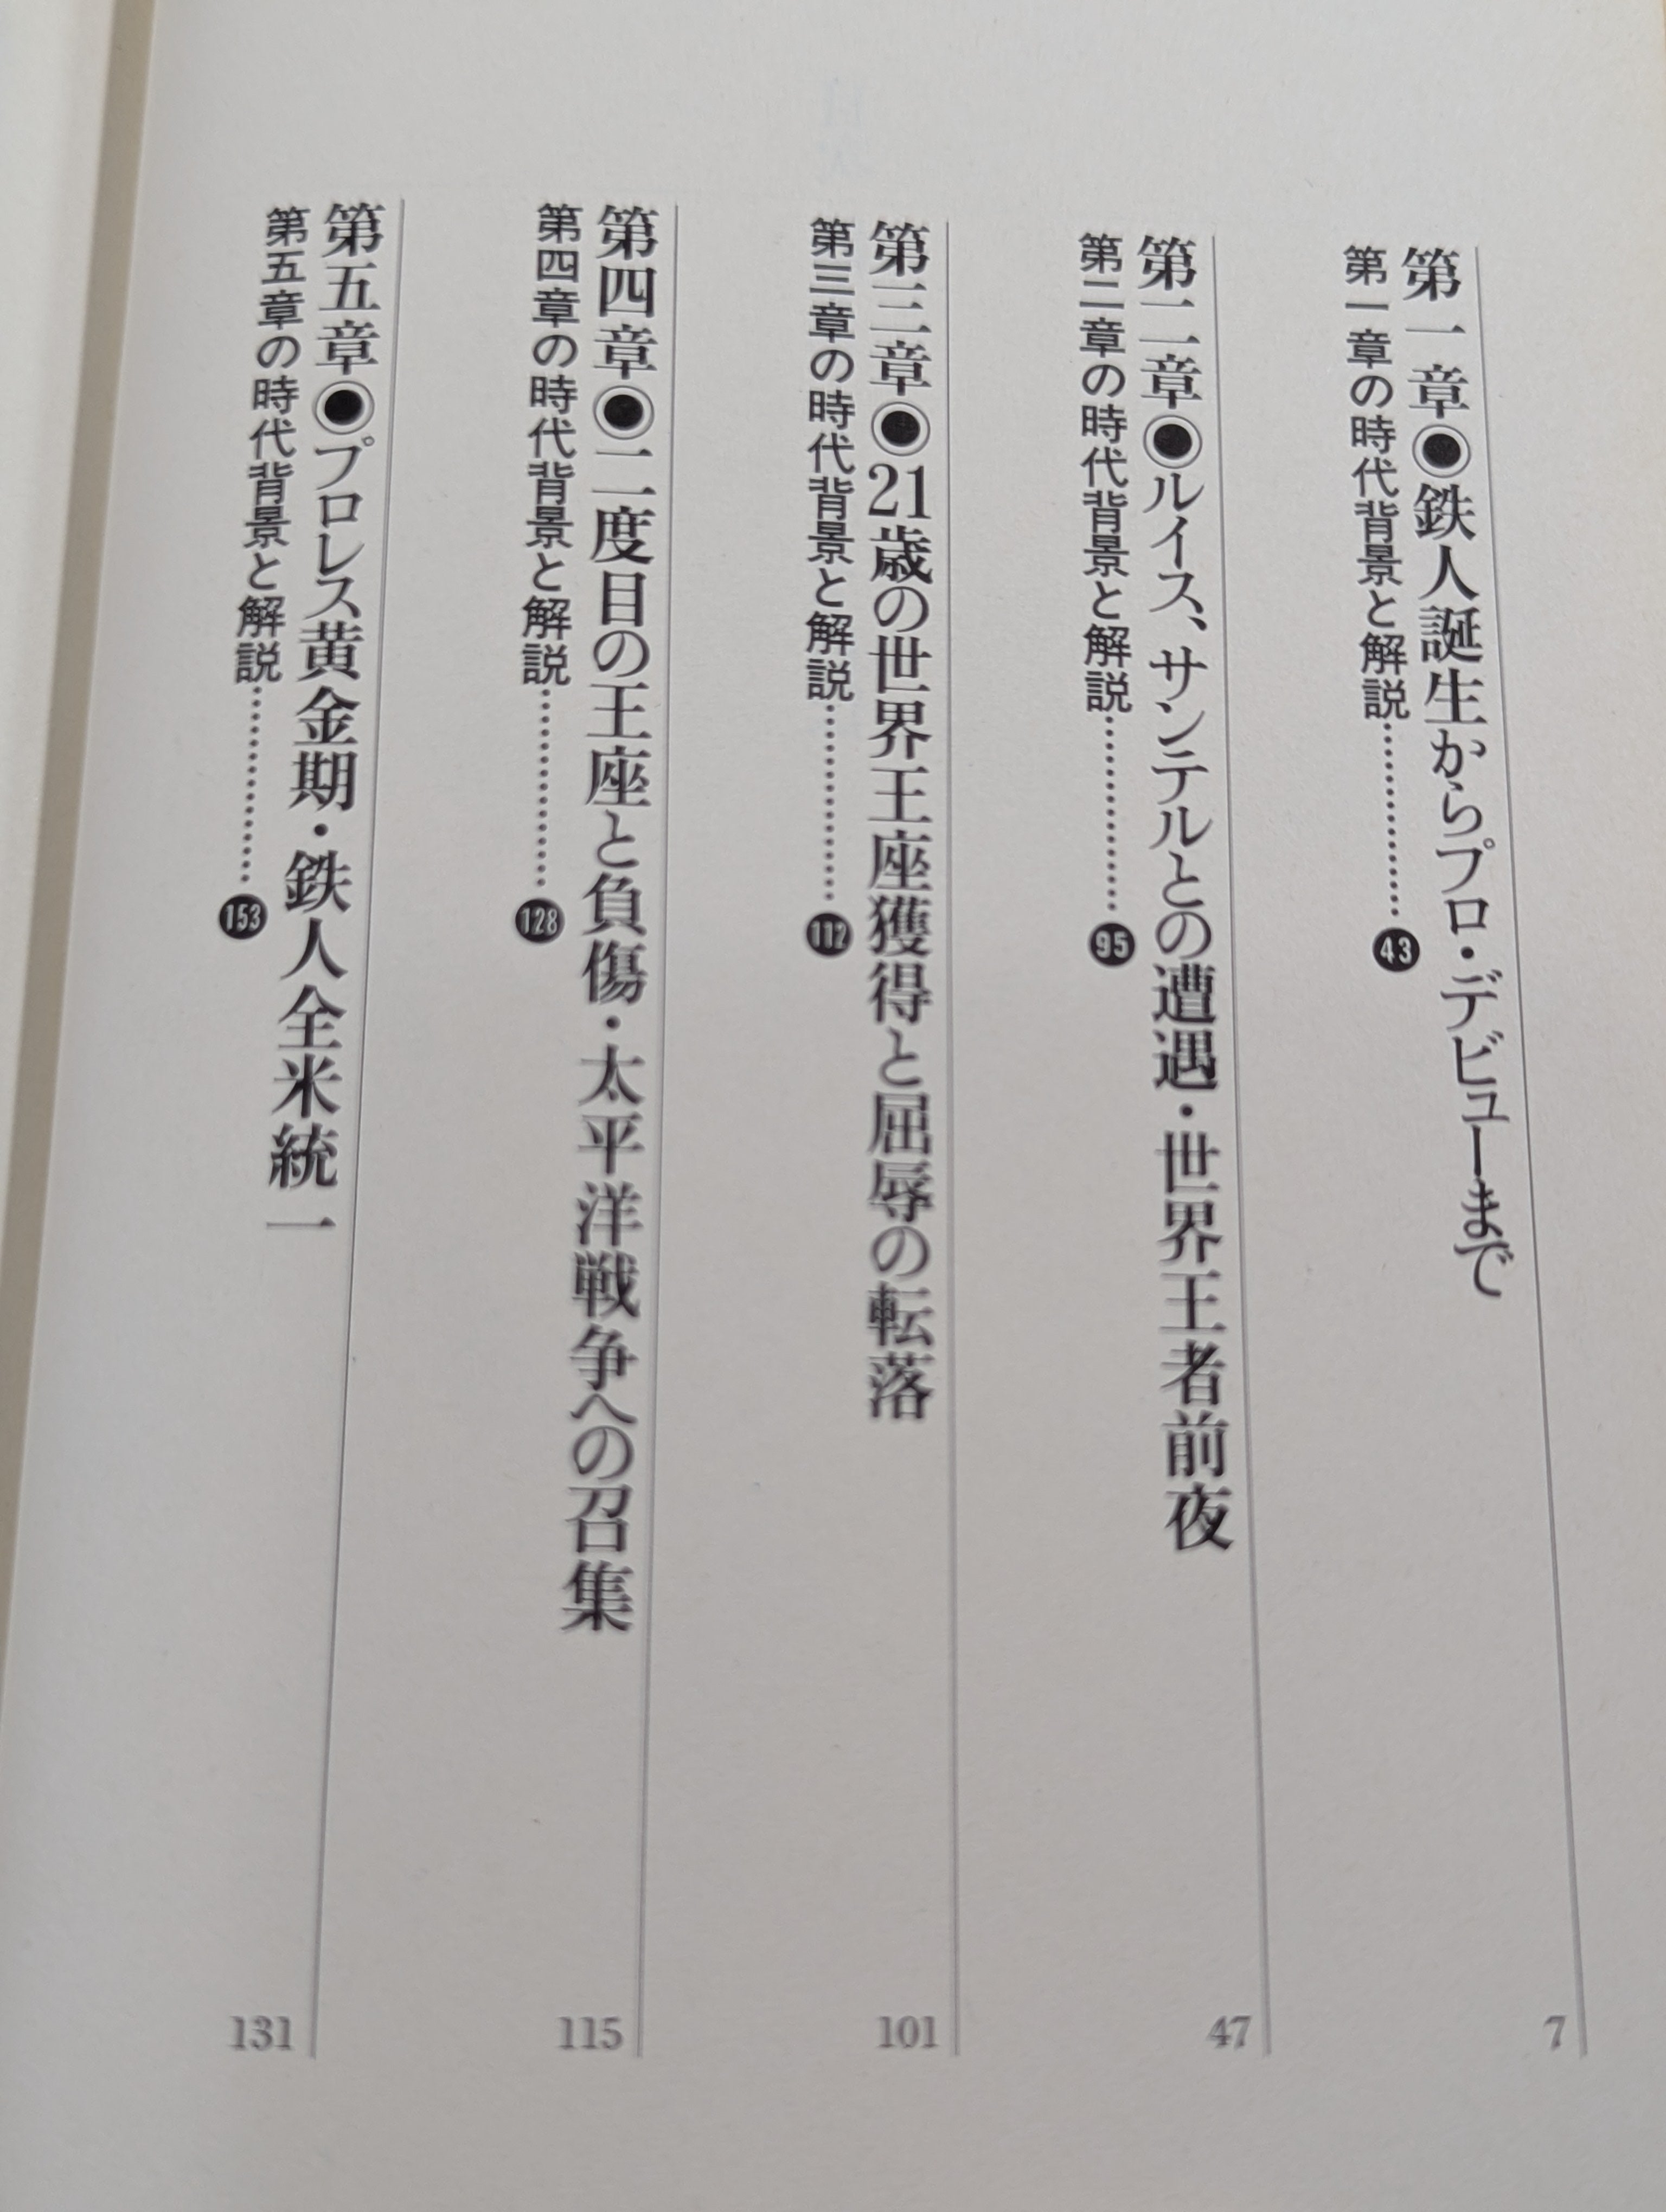 第一章◉鉄人誕生からプロ・デビューまで
7
第一章の時代背景と解説……………43
第二章◉ルイス、サンテルとの遭遇・世界王者前夜
47
第二章の時代背景と解説……………95
第三章◉21歳の世界王座獲得と屈辱の転落
101
第三章の時代背景と解説……………112
第四章◉二度目の王座と負傷・太平洋戦争への召集
115
第四章の時代背景と解説……………128
第五章◉プロレス黄金期・鉄人全米統一
131
第五章の時代背景と解説……………153